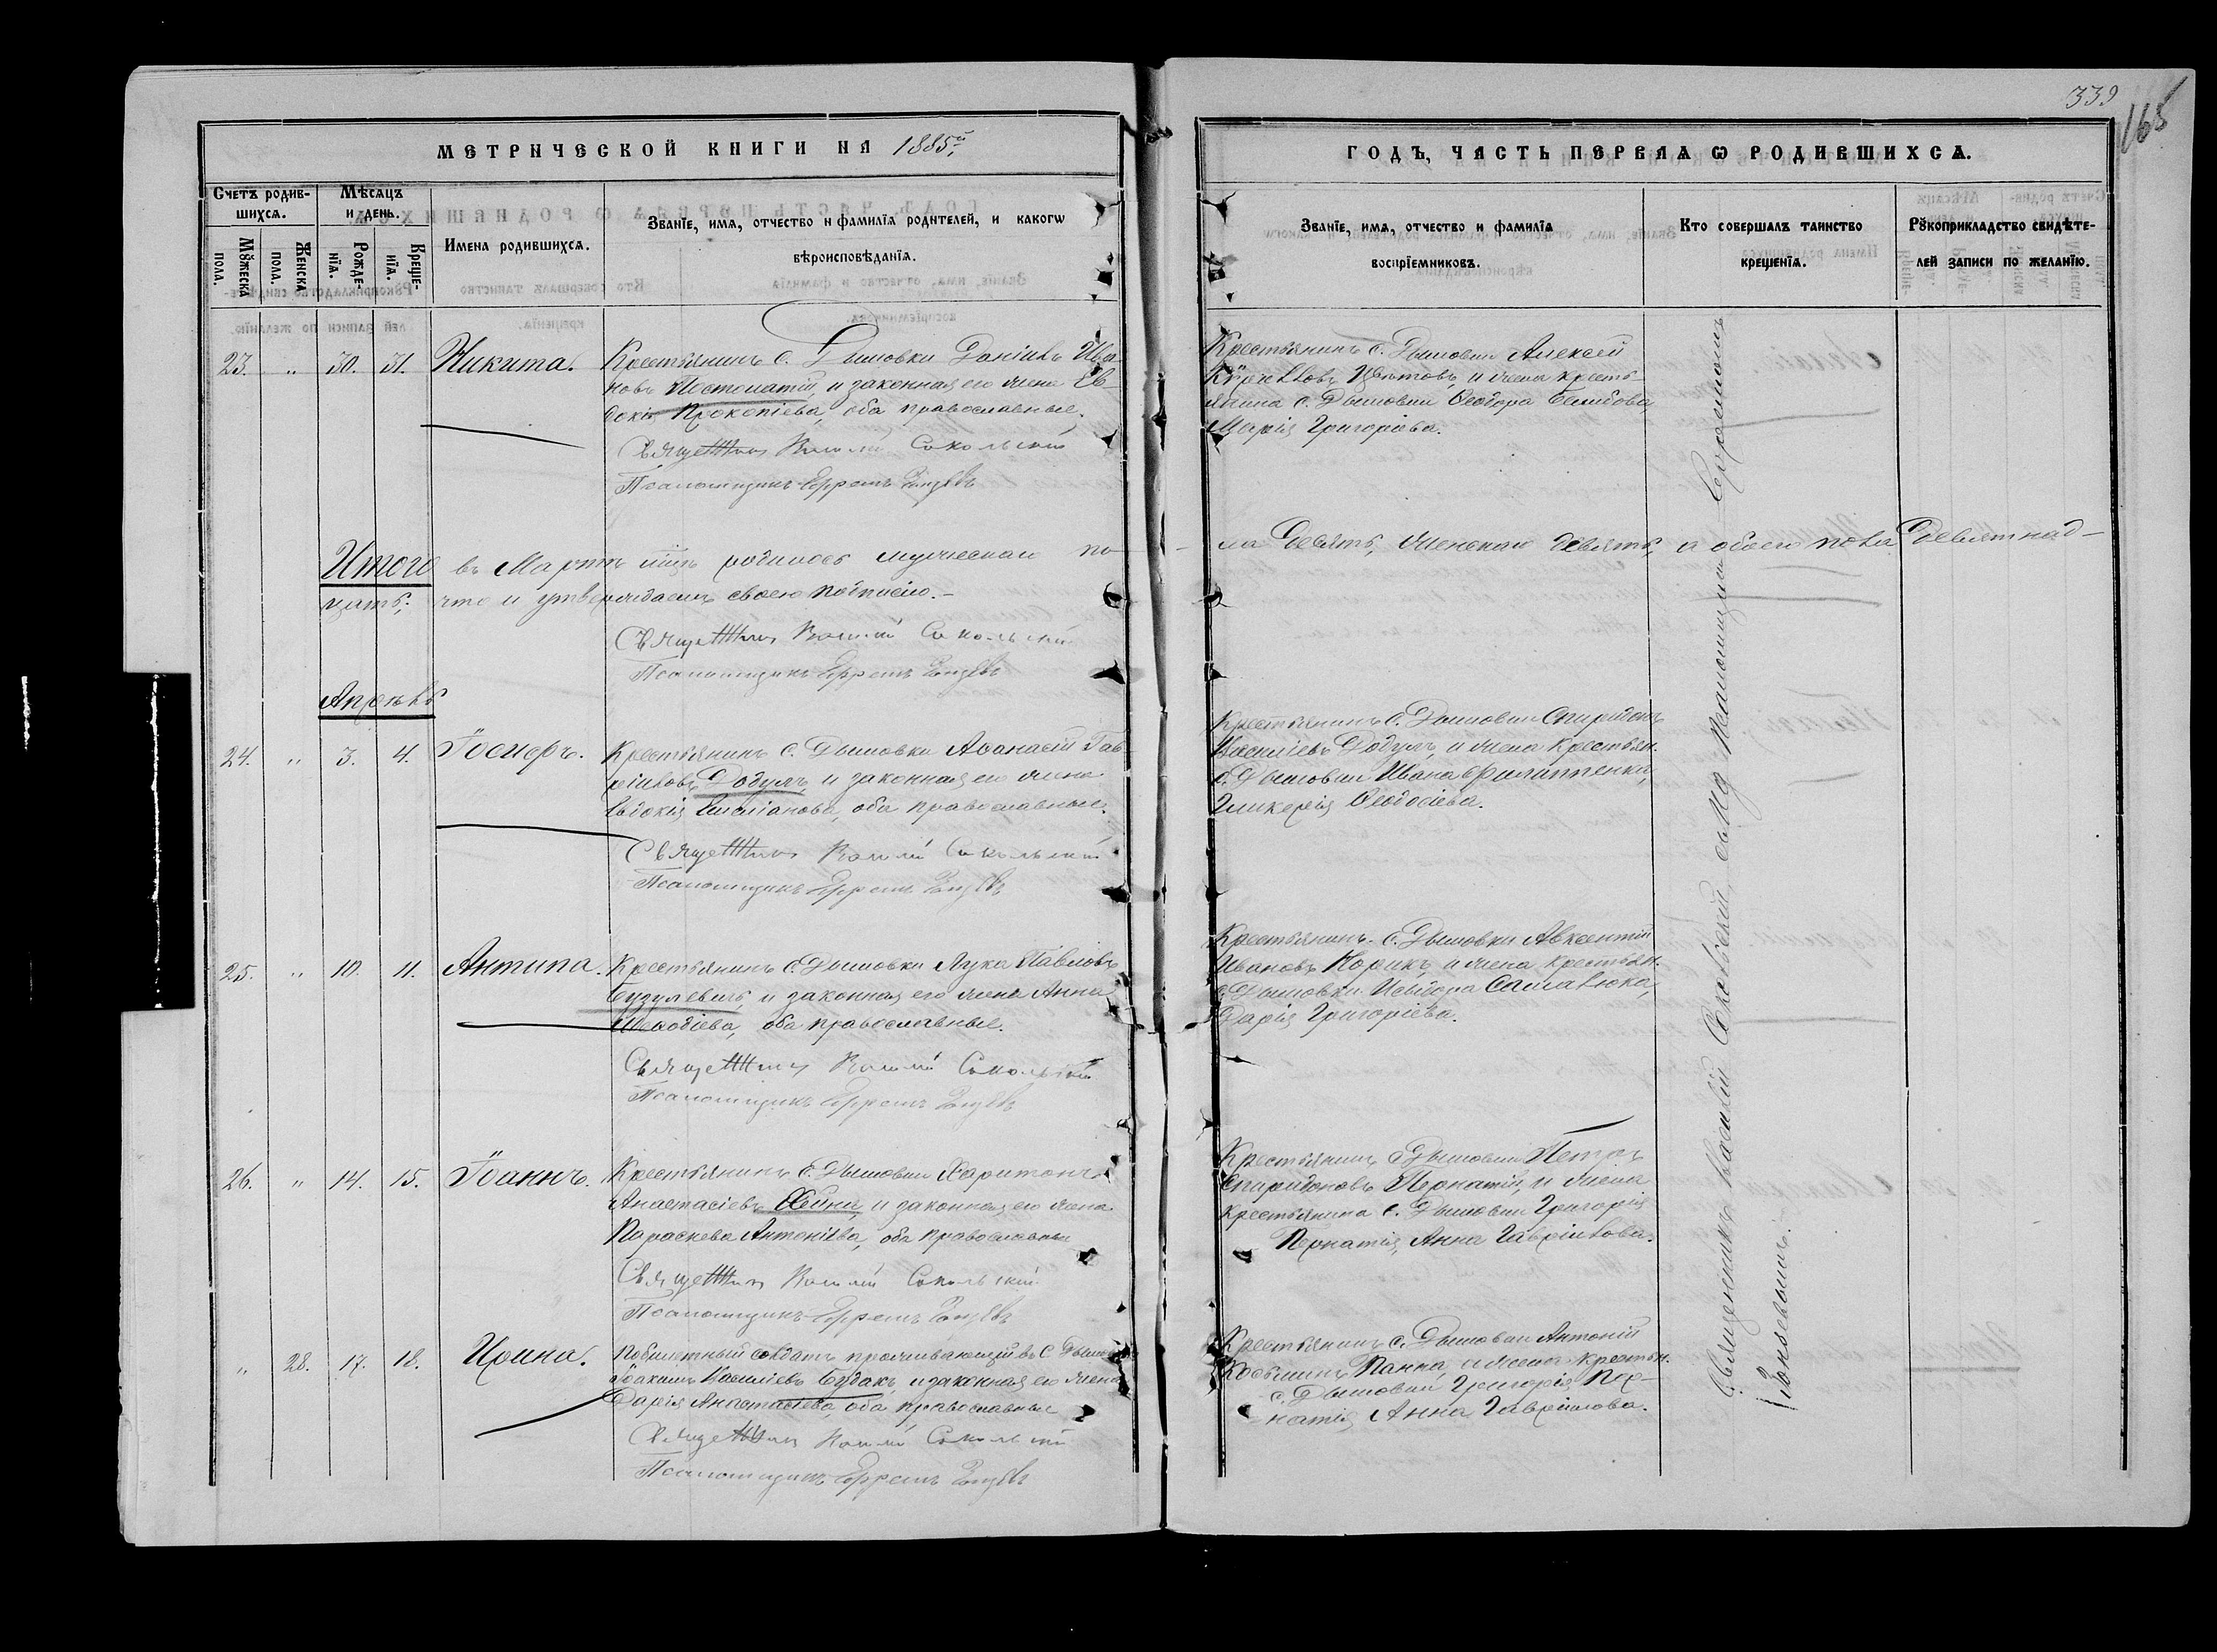 339
165
МЕТРИЧЕСКОЙ КНИГИ НА 1885й
ГОДЪ, ЧАСТЬ ПЕРВАЯ Ѡ РОДИВШИХСѦ.
Счетъ родив-
шихсѧ.
Мѣсѧцъ
и день.
Мꙋжеска
пола.
Женска
пола.
Рожде-
нїѧ.
Креще-
нїѧ.
Имена родившихсѧ.
Званїе, имѧ, отчество и фамилїѧ родителей, и какогѡ
вѣроисповѣданїѧ.
Званїе, имѧ, отчество и фамилїѧ
воспрїемниковъ.
Кто совершалъ таинство
крещенїѧ.
Рꙋкоприкладство свидѣте-
лей записи по желанїю.
23. " 30. 31. Никита.
Крестьянинъ с. Дымовки Даніилъ Ива
новъ Постолатій, и законная его жена Ев-
докія Прокопіева, оба православные.
Священникъ Василій Сокольскій
Псаломщикъ Ефремъ
Крестьянинъ с. Дымовки Алексей
Кирилловъ и жена кресть-
янина с. Дымовки Ѳеодора
Марія Григоріева.
Итого въ Мартѣ мцѣ родилось мужескаго по-
ла девять, женскаго девять, а обоего пола девятнад-
цать; что и утверждаемъ своею подписію.-
Священникъ Василій Сокольскій
Псаломщикъ Ефремъ
Апрѣль
24. " 3. 4. Іосифъ.
Крестьянинъ с. Дымовки Аѳанасій Гав-
ріиловъ Додулъ, и законная его жена
Евдокія Емиліанова, оба православные.
Священникъ Василій Сокольскій
Псаломщикъ Ефремъ
Крестьянинъ с. Дымовки Спиридонъ
Василіевъ Додулъ, и жена крестьян.
с. Дымовки Ивана Филиппенки,
Гликерія Ѳеодосіева.
25. " 10. 11. Антипа.
Крестьянинъ с. Дымовки Лука Павловъ
Бузулевичъ и законная его жена Анна
Меѳодіева, оба православные.
Священникъ Василій Сокольскій
Псаломщикъ Ефремъ
Крестьянинъ с. Дымовки Авксентій
Ивановъ Норикъ, и жена крестьян.
с. Дымовки Исидора
Дарія Григоріева.
26. " 14. 15. Іоаннъ.
Крестьянинъ с. Дымовки Харитонъ
Анастасіевъ и законная его жена
Параскева Антоніева, оба православные
Священникъ Василій Сокольскій
Псаломщикъ Ефремъ
Крестьянинъ с. Дымовки Петръ
Спиридоновъ Пернатій, и жена
крестьянина с. Дымовки Григорія
Пернатія, Анна Гавріилова.
" 28. 17. 18. Ирина.
Побилетный солдатъ проживающій въ с. Дымов
Іоакимъ Василіевъ Будакъ, и законная его жена
Дарія Анастасіева, оба православные
Священникъ Василій Сокольскій
Псаломщикъ Ефремъ
Крестьянинъ с. Дымовки Антоній
Панна, и жена крестьян.
с. Дымовки Григорія Пер-
натія Анна Гавріилова.
Священникъ Василій Сокольскій, съ Псаломщикомъ Ефремомъ